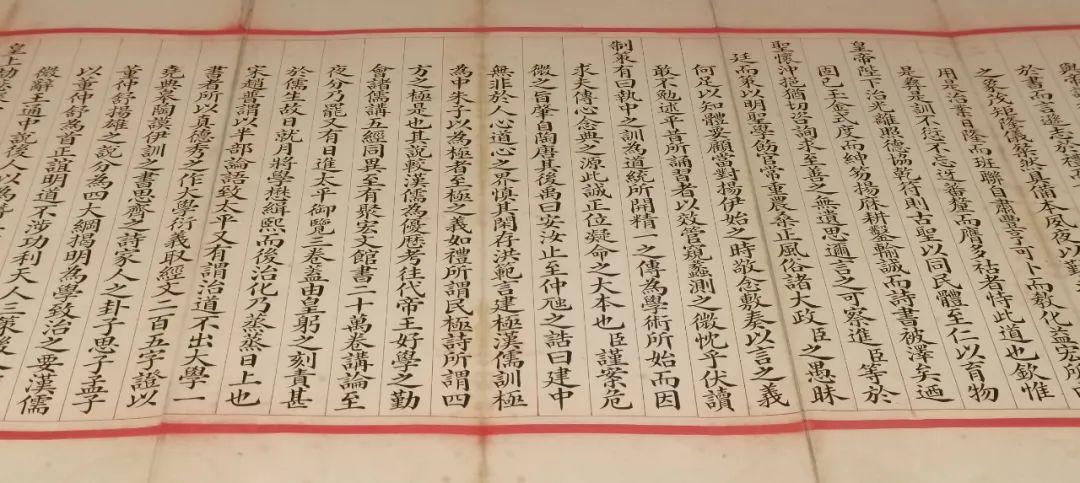 於書而言遜志於禮
之象茂矩隆儀粲然具備本夙夜以勤
用是治業日隆而班聯自肅豐亨可卜而敦化益宏所
是彝是訓不愆不忘迓蕃釐而膺多祜者恃此道也欽惟
皇帝陛下治光離照德協乾行則古聖以同民體至仁以育物
固已玉金式度而紳笏揚庥耕鑿輸誠而詩書被澤矣迺
聖懷沖挹猶切咨詢求至善之無遺思邇言之可察進臣等於
廷而策以明聖學飭官常重農桑正風俗諸大政臣之愚昧
何足以知體要顧當對揚伊始之時敬念敷奏以言之義
敢不勉述平昔所誦習者以效管窺蠡測之微忱乎伏讀
制策有曰執中之訓為道統所開精一之傳為學術所始而因
求夫傳心念典之源此誠正位凝命之大本也臣謹案危
微之旨肇自陶唐其後禹曰安汝止至仲虺之誥曰建中
無非於人心道心之界慎其閑存洪範言建極漢儒訓極
為中朱子以為極者至極之義如禮所謂民極詩所謂四
方之極是也其說較漢儒為優歷考往代帝王好學之勤
會諸儒講五經同異至有聚宏文館書二十萬卷講論至
夜分乃罷又有日進太平御覽三卷蓋由皇躬之刻責甚
於儒生故日就月將學懋緝熙而後治化乃蒸蒸日上也
宋趙普謂以半部論語致太平又有謂治道不出大學一
書者所以真德秀之作大學衍義取經文二百五字證以
堯典皋陶謨伊訓之書思齊之詩家人之卦子思子孟子
董仲舒揚雄之說分為四大綱揭明為學致治之要漢儒
以董仲舒為首正誼明道不涉功利天人三策
微辭王通中說後人以為
皇上